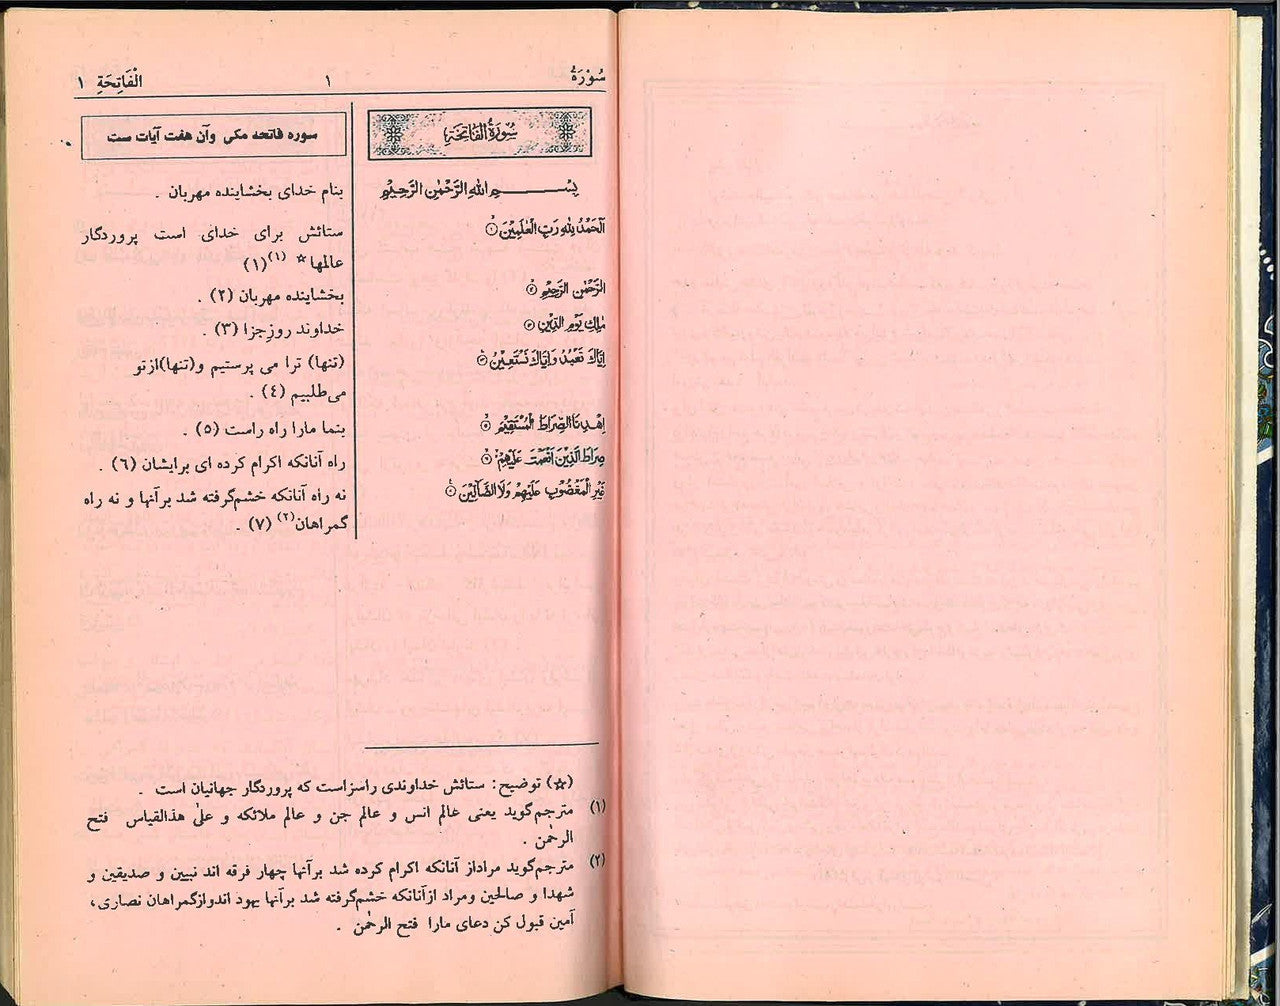 سُوْرَةُ ١ الْفَاتِحَةِ ١
سُوْرَةُ الْفَاتِحَةِ
بِسْــــــمِ اللهِ الرَّحْمٰنِ الرَّحِيْمِ
اَلْحَمْدُ لِلّٰهِ رَبِّ الْعٰلَمِيْنَ ١
الرَّحْمٰنِ الرَّحِيْمِ ٢
مٰلِكِ يَوْمِ الدِّيْنِ ٣
اِيَّاكَ نَعْبُدُ وَاِيَّاكَ نَسْتَعِيْنُ ٤
اِهْدِنَا الصِّرَاطَ الْمُسْتَقِيْمَ ٥
صِرَاطَ الَّذِيْنَ اَنْعَمْتَ عَلَيْهِمْ ٦
غَيْرِ الْمَغْضُوْبِ عَلَيْهِمْ وَلَا الضَّآلِّيْنَ ٧
سوره فاتحه مکی وآن هفت آیات ست
بنام خدای بخشاینده مهربان .
ستائش برای خدای است پروردگار
عالمها☆ (١)(١)
بخشاینده مهربان (٢) .
خداوند روزجزا (٣) .
(تنها) ترا می پرستیم و(تنها)ازتو
می‌طلبیم (٤) .
بنما مارا راه راست (٥) .
راه آنانکه اکرام کرده ای برایشان (٦) .
نه راه آنانکه خشم‌گرفته شد برآنها و نه راه
گمراهان(٢) (٧) .
(☆) توضیح: ستائش خداوندی راسزاست که پروردگار جهانیان است .
(١) مترجم‌گوید یعنی عالم انس و عالم جن و عالم ملائکه و علیٰ هذالقیاس فتح
الرحمٰن .
(٢) مترجم‌گوید مراداز آنانکه اکرام کرده شد برآنها چهار فرقه اند نبیین و صدیقین و
شهدا و صالحین ومراد ازآنانکه خشم‌گرفته شد برآنها یهود اندوازگمراهان نصاری،
آمین قبول کن دعای مارا فتح الرحمٰن .